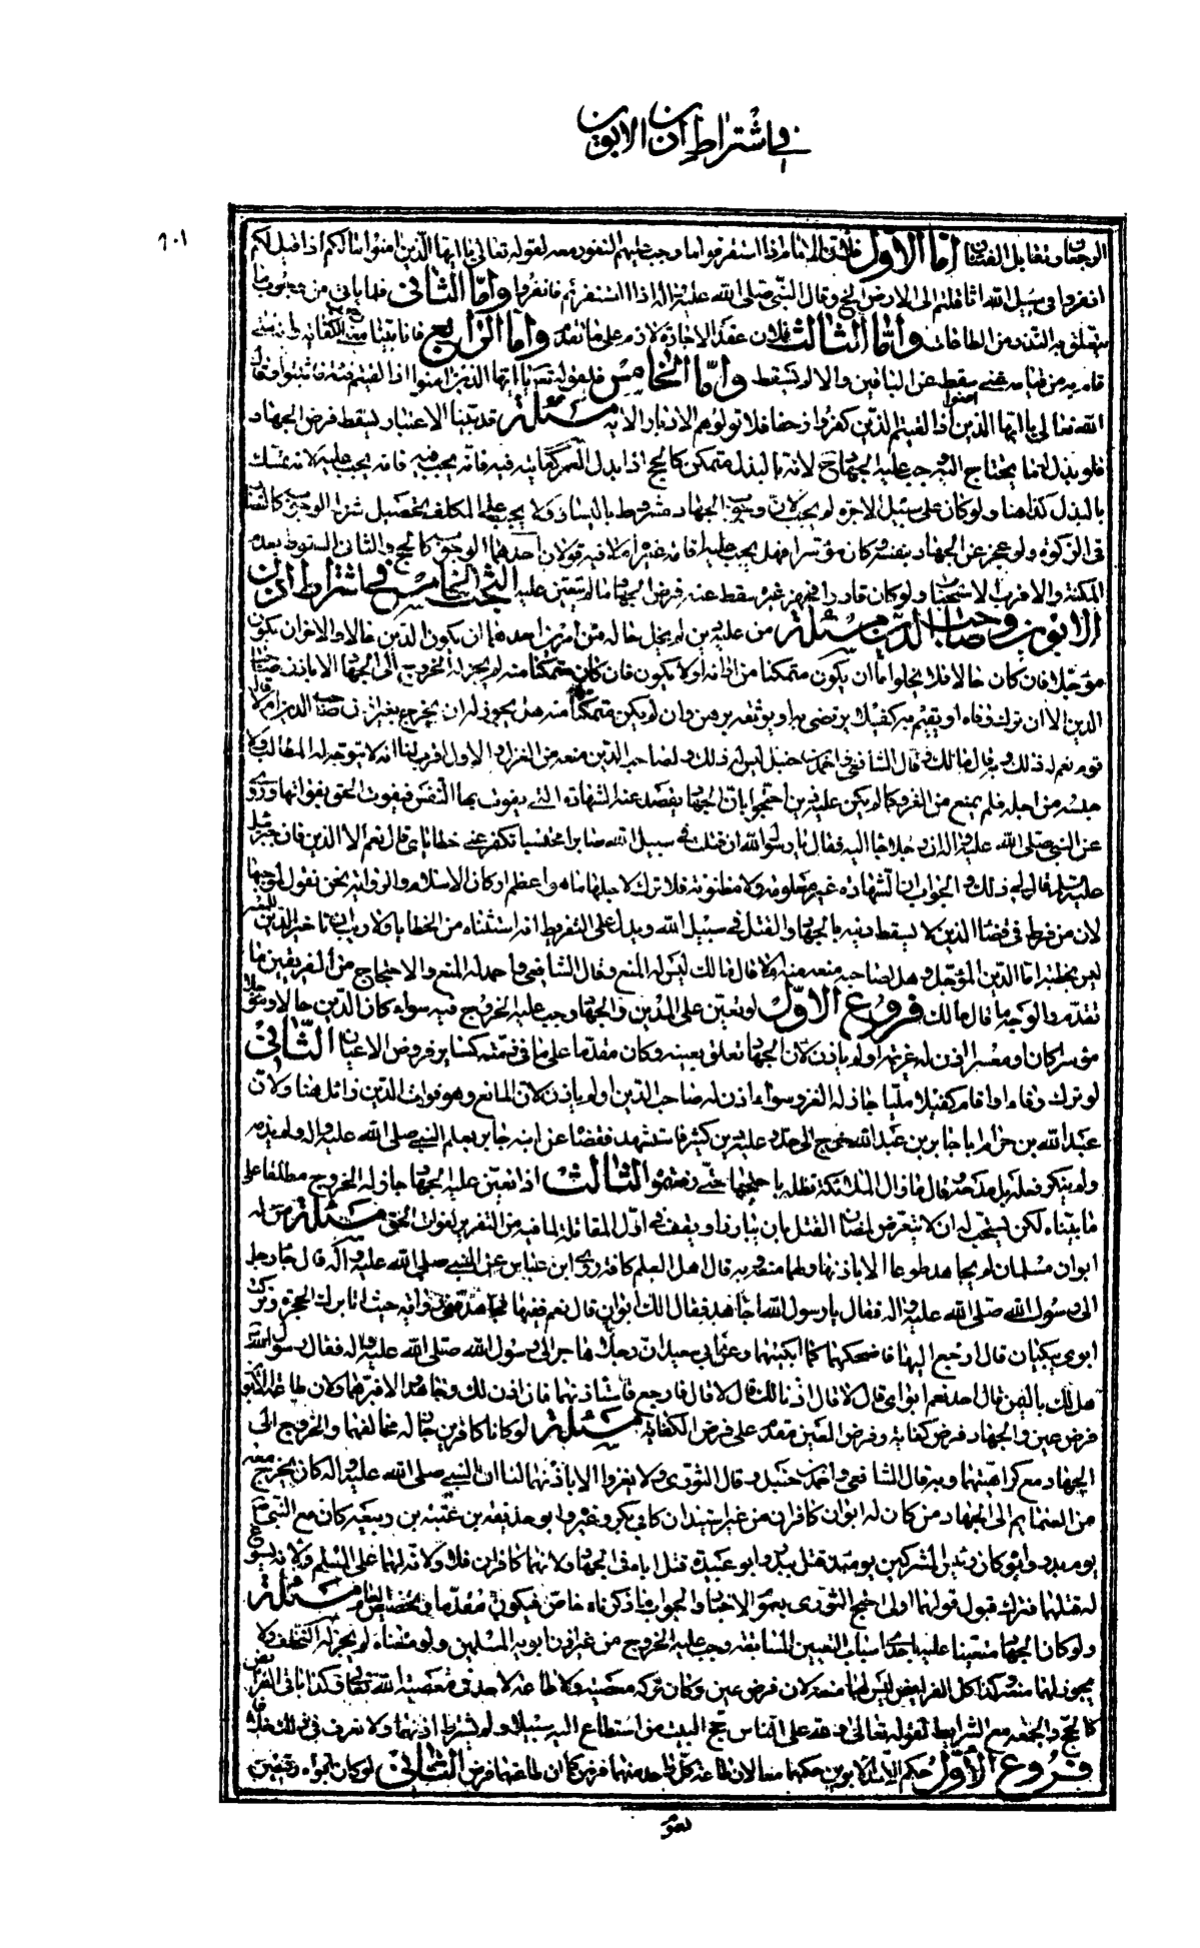 في اشتراط اذن الابوين
٩٠١
الزحفان وتقابل الفئتان اما الاول فلان الامام اذا استنفر قوما وجب عليهم النفور معه لقوله تعالى يا ايها الذين امنوا ما لكم اذا قيل لكم
انفروا في سبيل الله اثاقلتم الى الارض الخ وقال النبي صلى الله عليه واله اذا استنفرتم فانفروا واما الثاني فلما ياتي من وجوب ما
يتعلق به النذر من الطاعات واما الثالث فلان عقد الاجارة لازم على ما تقدم واما الرابع فلما بينا من الكفاية
قام به من فيه غنى سقط عن الباقين والا لم يسقط واما الخامس فلقوله تعالى يا ايها الذين امنوا اذا لقيتم فئة فاثبتوا وقال
الله تعالى يا ايها الذين امنوا اذا لقيتم الذين كفروا زحفا فلا تولوهم الادبار الاية مسئلة قد بينا الاعتبار ليسقط فرض الجهاد
فلو بذل له ما يحتاج اليه وجب عليه الجهاد لانه بالبذل متمكن كالحج اذا بذل لمعسر كفايته فيه فانه يجب فيه فانه يجب عليه لانه تمسك
بالبذل كذا هنا ولو كان على سبيل الاجرة لم يجب لان وجوب الجهاد مشروط باليسار ولا يجب على المكلف تحصيل شرط الوجوب كالنصاب
في الزكوة ولو عجز عن الجهاد بنفسه وكان موسرا فهل يجب عليه اقامة غيره ام لا فيه قولان احدهما الوجوب كالحج والثاني السقوط لعدم
المكنة والاقرب الاستحباب ولو كان قادرا فجهز غيره سقط عنه فرض الجهاد ما لم يتعين عليه البحث الخامس في اشتراط اذن
الابوين وصاحب الدين مسئلة من عليه دين لم يخل حاله من امرين احدهما ان يكون الدين حالا والاخر ان يكون
مؤجلا فان كان حالا فلا يخلوا اما ان يكون متمكنا من ادائه او لا يكون فان كان متمكنا منه لم يجز له الخروج الى الجهاد الا باذن صاحب
الدين الا ان ترك وفاء او يقيم به كفيلا يرتضى به او يوثقه برهن وان لم يكن متمكنا منه هل يجوز له ان يخرج بغير اذن صاحب الدين ام لا قال
قوم نعم له ذلك وبه قال مالك وقال الشافعي واحمد بن حنبل ليس له ذلك ولصاحب الدين منعه من الغزو والاول اقرب لنا انه لا يتوجه له المطالبة ولا
حبسه من اجله فلم يمنع من الغزو كما لو لم يكن عليه دين احتجوا بان الجهاد يقصد عنه الشهادة التي يفوت بها النفس فيفوت الحق بفواتها وروي
عن النبي صلى الله عليه واله ان رجلا جاء اليه فقال يا رسول الله ان قتلت في سبيل الله صابرا محتسبا تكفر عني خطاياي قال نعم الا الدين فان جبرئيل
عليه السلم قال لي ذلك والجواب ان الشهادة غير معلومة ولا مظنونة فلا تترك لاجلها ما هو اعظم اركان الاسلام والرواية نحن نقول بموجبها
لان من فرط في قضاء الدين لا يسقط دينه بالجهاد والقتل في سبيل الله ويدل على التفريط انه استثناه من الخطايا ولا ريب ان تاخير الدين للمعسر
ليس بخطيئة اما الدين المؤجل وهل لصاحبه منعه منه ام لا قال مالك ليس له المنع وقال الشافعي واحمد له المنع والاحتجاج من الفريقين ما
تقدم والوجه ما قال مالك فروع الاول لو تعين على المدين والجهاد وجب عليه الخروج فيه سواء كان الدين حالا او مؤجلا
موسرا كان او معسرا اذن له غريمه او لم ياذن لان الجهاد تعلق بعينه وكان مقدما على ما في ذمته كساير فروض الاعيان الثاني
لو ترك وفاء او اقام كفيلا مليا جاز له الغزو سواء اذن له صاحب الدين او لم ياذن لان المانع وهو فوات الدين زائل هنا ولان
عبد الله بن حزام ابا جابر بن عبد الله خرج الى احد وعليه دين كثير فاستشهد فقضاء عن ابنه جابر بعلم النبي صلى الله عليه واله ولم يذمه
ولم ينكر فعله بل مدحه وقال ما زال الملائكة تظله باجنحتها حتى رفعتموه الثالث اذا تعين عليه الجهاد جاز له الخروج مطلقا على
ما بيناه لكن يستحب له ان لا يتعرض لمضان القتل بان يبارز او يقف في اول المقاتلة لما فيه من التغرير لفوات الحق مسئلة من له
ابوان مسلمان لم يجاهد تطوعا الا باذنهما ولهما منعه وبه قال اهل العلم كافة روى ابن عباس عن النبي صلى الله عليه واله قال جاء رجل
الى رسول الله صلى الله عليه واله فقال يا رسول الله اجاهد فقال الك ابوان قال نعم ففيهما فجاهد وفي رواية جئت ابايعك الهجرة وتركت
ابوي يبكيان قال ارجع اليهما فاضحكهما كما ابكيتهما وعن ابي سعيد ان رجلا هاجر الى رسول الله صلى الله عليه واله فقال رسول الله
هل لك باليمن قال احد نعم ابواي قال لا قال اذنا لك قال لا قال فارجع فاستاذنهما فان اذن لك فجاهد والا فبرهما ولان طاعة الابوين
فرض عين والجهاد فرض كفاية وفرض العين مقدم على فرض الكفاية مسئلة لو كانا كافرين جاز له مخالفتهما والخروج الى
الجهاد مع كراهيتهما وبه قال الشافعي واحمد بن حنبل وقال الثوري ولا يغزوا الا باذنهما لنا ان النبي صلى الله عليه واله كان يخرج معه
من الصحابة الى الجهاد من كان له ابوان كافران من غير استيذان كابي بكر وغيره وابو حذيفة بن عتبة بن ربيعة كان مع النبي
يوم بدر وابوه كان رئيس المشركين يومئذ قتل ببدر وابو عبيدة قتل اباه في الجهاد ولانهما كافران فلا ولاية لهما على المسلم ولانه يسوغ
له قتلهما فترك قبول قولهما اولى احتج الثوري بعموم الاخبار والجواب ما ذكرناه خاص فيكون مقدما في تخصيص العام مسئلة
ولو كان الجهاد متعينا عليه باحد اسباب التعيين السابقة وجب عليه الخروج من غير اذن ابويه المسلمين ولو منعاه لم يجز له التخلف ولا
يجوز لهما منعه وكذا كل الفرايض ليس لهما منعه لان فرض عين وكان تركه معصية ولا طاعة لاحد في معصية الله تعالى وكذا باقي الفرايض
كالحج والجمعة مع الشرايط لقوله تعالى ولله على الناس حج البيت من استطاع اليه سبيلا ولم يشترط اذنهما ولا نعرف في ذلك خلافا
فروع الاول حكم احد الابوين حكمهما معا لان طاعة كل واحد منهما فرض كما ان طاعتهما فرض الثاني لو كان ابواه رقيقين
لعموم